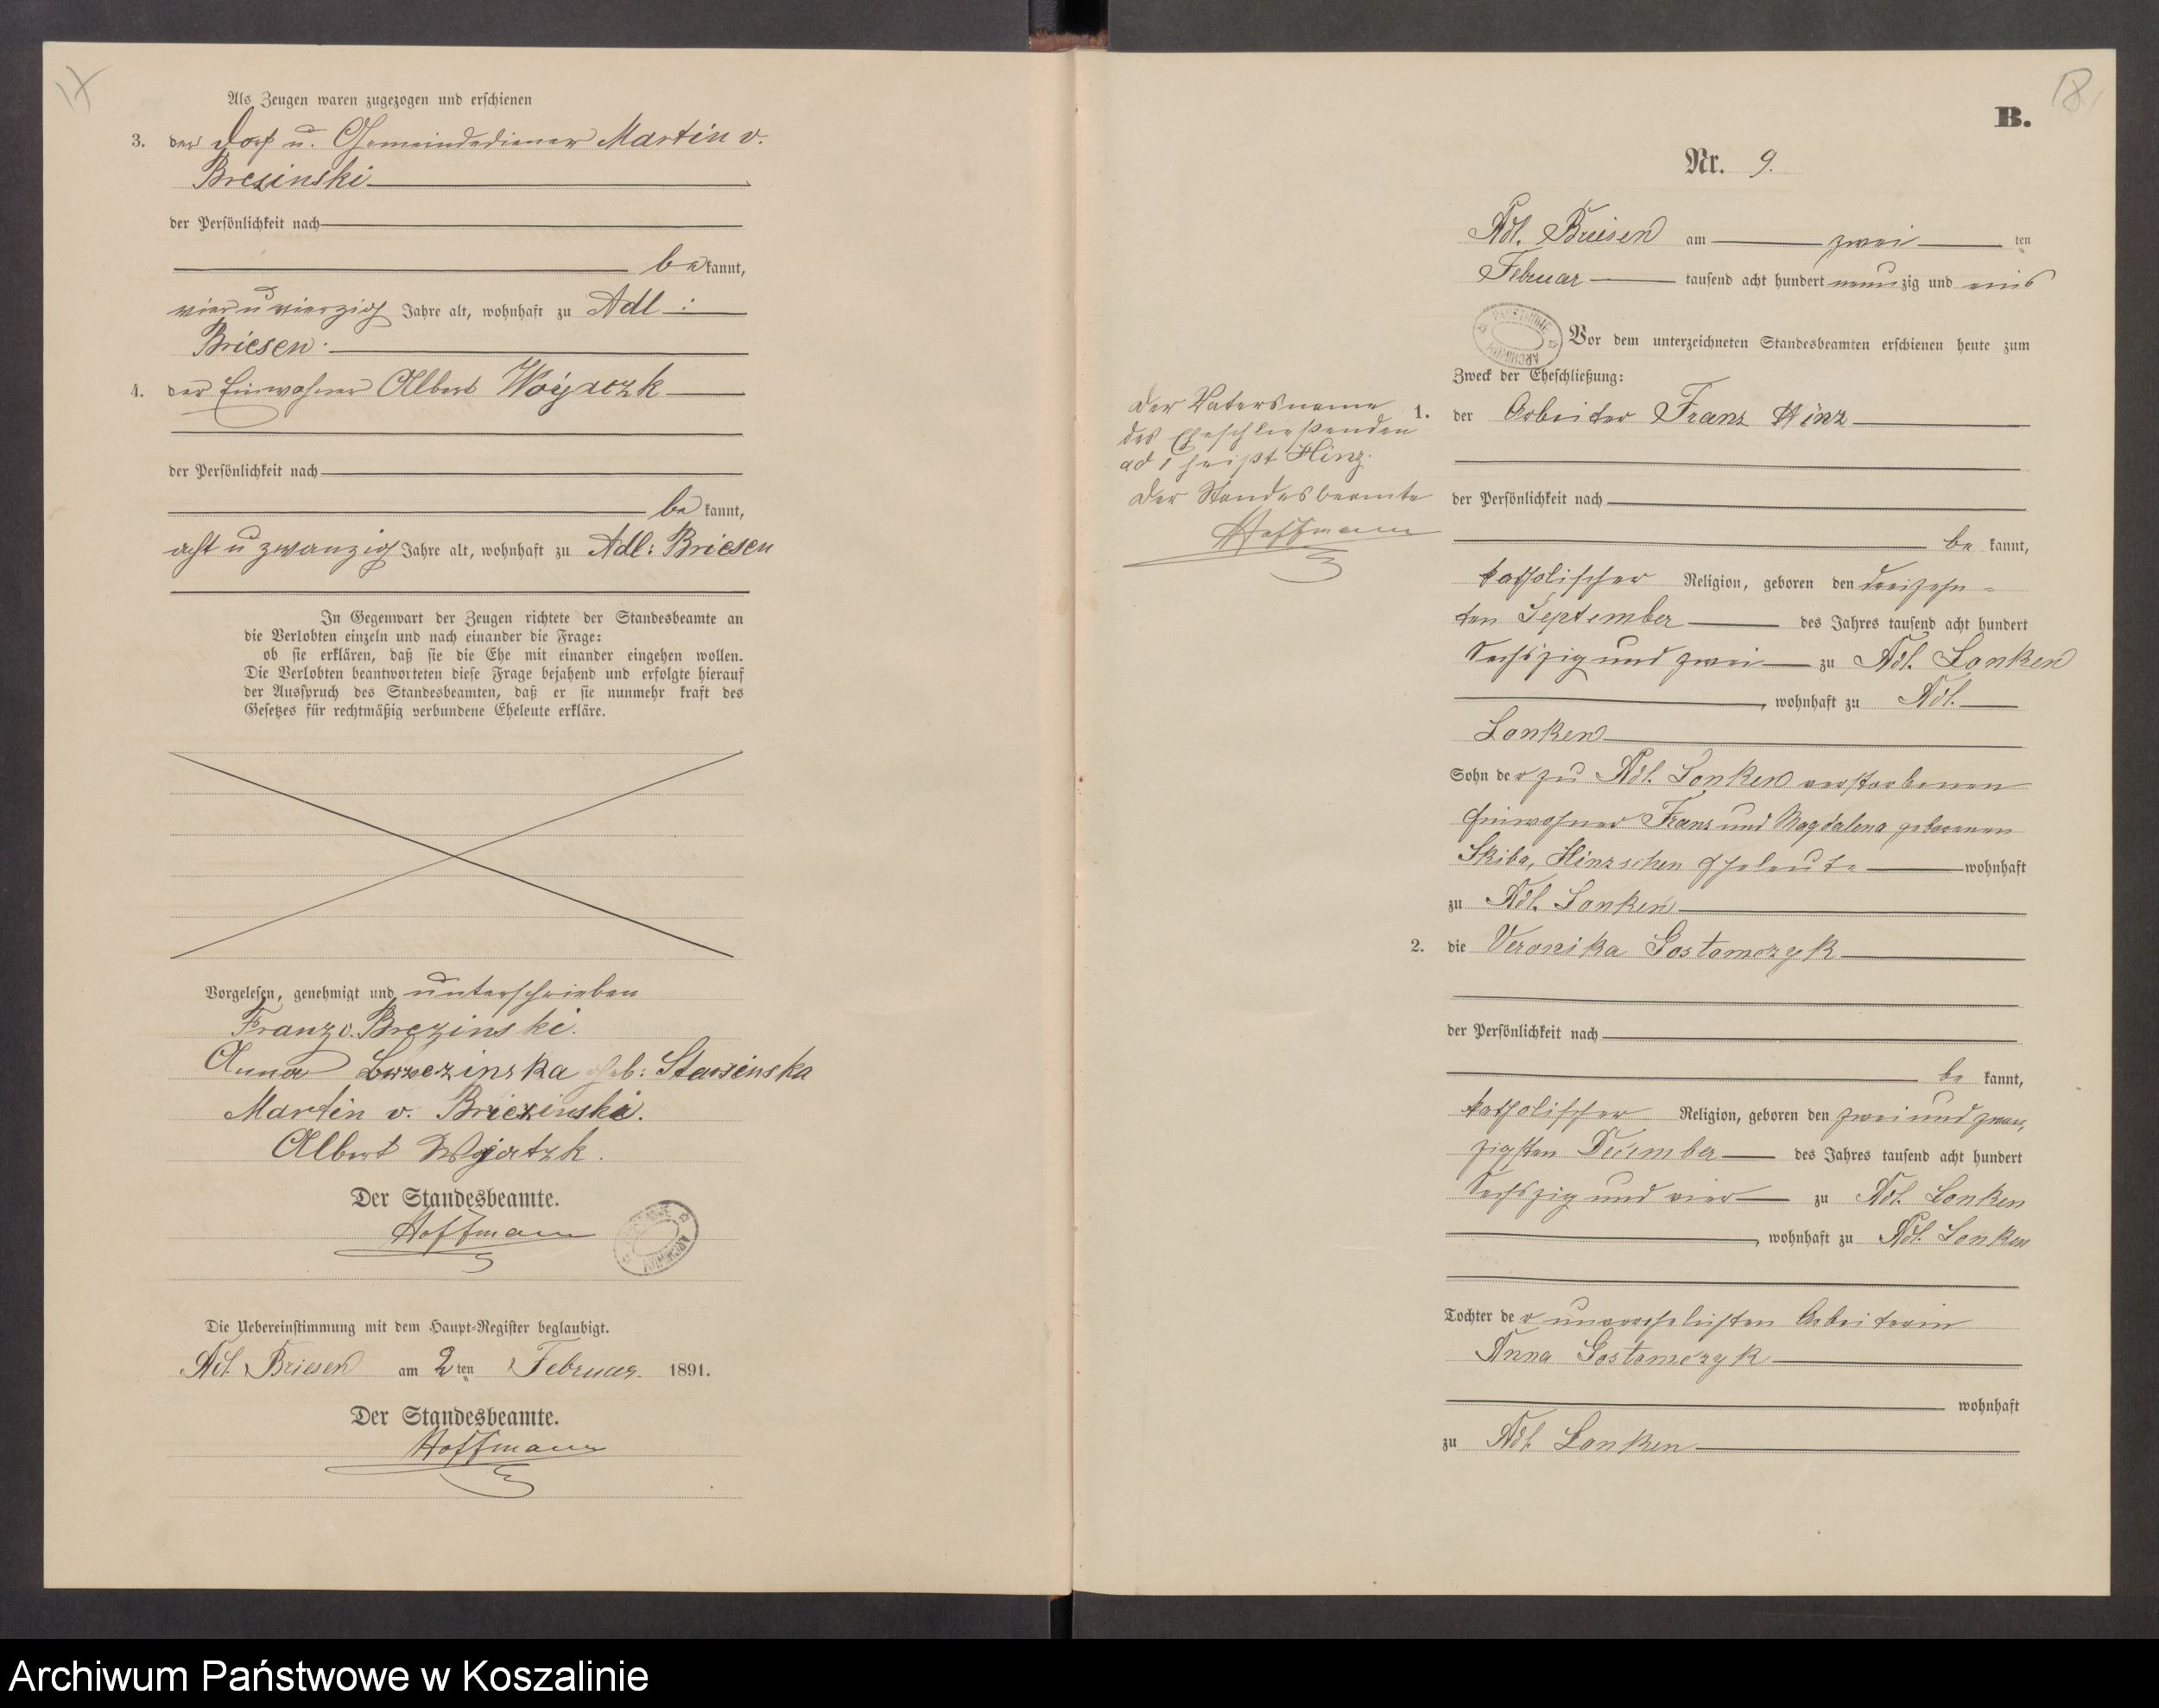 17
Als Zeugen waren zugezogen und erschienen
3. der Dorf u. Gemeindediener Martin v.
Bresinski
der Persönlichkeit nach
bekannt,
vier u vierzig Jahre alt, wohnhaft zu Adl:
Briesen.
4. der Einwohner Albert Woyaczk
der Persönlichkeit nach
bekannt,
acht u zwanzig Jahre alt, wohnhaft zu Adl: Briesen
In Gegenwart der Zeugen richtete der Standesbeamte an
die Verlobten einzeln und nach einander die Frage:
ob sie erklären, daß sie die Ehe mit einander eingehen wollen.
Die Verlobten beantworteten diese Frage bejahend und erfolgte hierauf
der Ausspruch des Standesbeamten, daß er sie nunmehr kraft des
Gesetzes für rechtmäßig verbundene Eheleute erkläre.
Vorgelesen, genehmigt und unterschrieben
Franz v. Brezinski.
Anna Brzezinska geb: Stansinska
Martin v. Briezinski.
Albert Wojatzk.
Der Standesbeamte.
Hoffmann
ARCHIWUM
Die Uebereinstimmung mit dem Haupt-Register beglaubigt.
Adl. Briesen am 2ten Februar 1891.
Der Standesbeamte.
Hoffmann
18
B.
Nr. 9.
Adl. Briesen am zwei ten
Februar tausend acht hundert neunzig und eins
PAŃSTWOWE ARCHIWUM
Vor dem unterzeichneten Standesbeamten erschienen heute zum
Zweck der Eheschließung:
Der Vatersname
des Eheschließenden
ad 1 heißt Hinz.
Der Standesbeamte
Hoffmann
1. der Arbeiter Franz Hinz
der Persönlichkeit nach
bekannt,
katholischer Religion, geboren den dreizehn-
ten September des Jahres tausend acht hundert
sechszig und zwei zu Adl. Lonken
, wohnhaft zu Adl.
Lonken
Sohn der zu Adl. Lonken verstorbenen
Einwohner Franz und Magdalena geborenen
Skiba, Hinzschen Eheleute wohnhaft
zu Adl. Lonken
2. die Veronika Gostomczyk
der Persönlichkeit nach
bekannt,
katholischer Religion, geboren den zwei und zwan-
zigsten December des Jahres tausend acht hundert
sechszig und vier zu Adl. Lonken
, wohnhaft zu Adl. Lonken
Tochter der unverehelichten Arbeiterin
Anna Gostomczyk
wohnhaft
zu Adl. Lonken
Archiwum Państwowe w Koszalinie